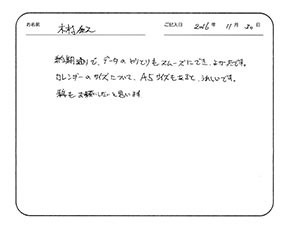 お名前 木村 ご記入日 2016年 11月 30日
納期通りで、データのやりとりもスムーズにでき、よかったです。
カレンダーのサイズについて、A5サイズもあると、うれしいです。
またお願いしたいと思います